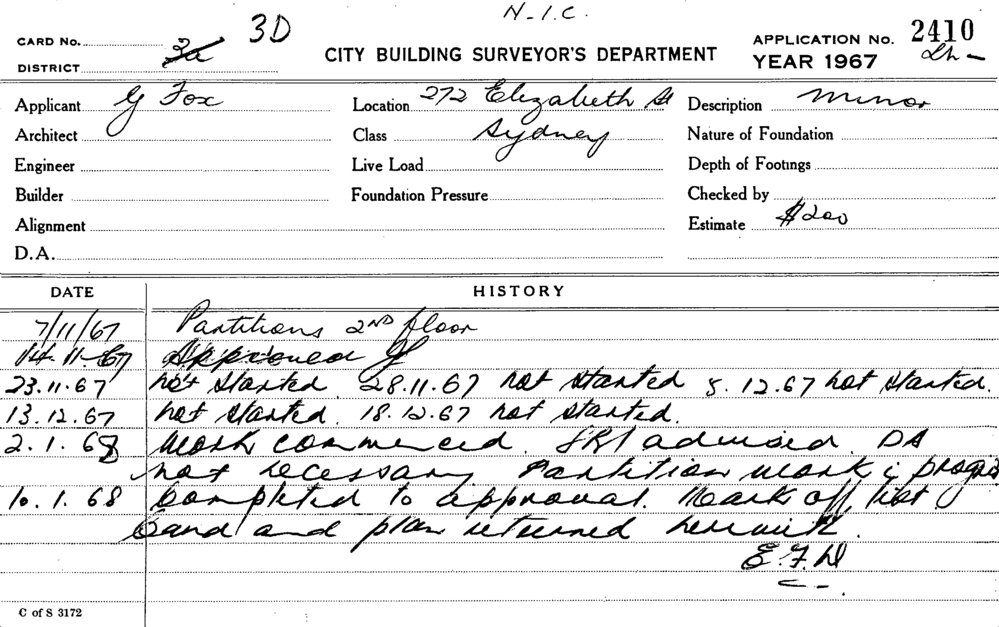 N-I.C.
CARD No. 3D
DISTRICT 3a
CITY BUILDING SURVEYOR'S DEPARTMENT
APPLICATION No. 2410
YEAR 1967
Applicant G Fox
Location 272 Elizabeth St
Description Minor
Architect
Class Sydney
Nature of Foundation
Engineer
Live Load
Depth of Footings
Builder
Foundation Pressure
Checked by
Alignment
Estimate $200
D.A.
DATE HISTORY
7/11/67 Partitions 2ND floor
14.11.67 Approved
23.11.67 not started 28.11.67 not started 5.12.67 not started.
13.12.67 not started. 18.12.67 not started.
2.1.68 Work commenced. advised DA
not necessary Partition work
10.1.68 Completed to approval. Mark off list
Card and plan returned herewith.
E.F.D
C of S 3172